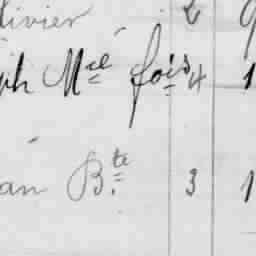 livier 2
ph Mcel fois 4 1
an Bte 3 1